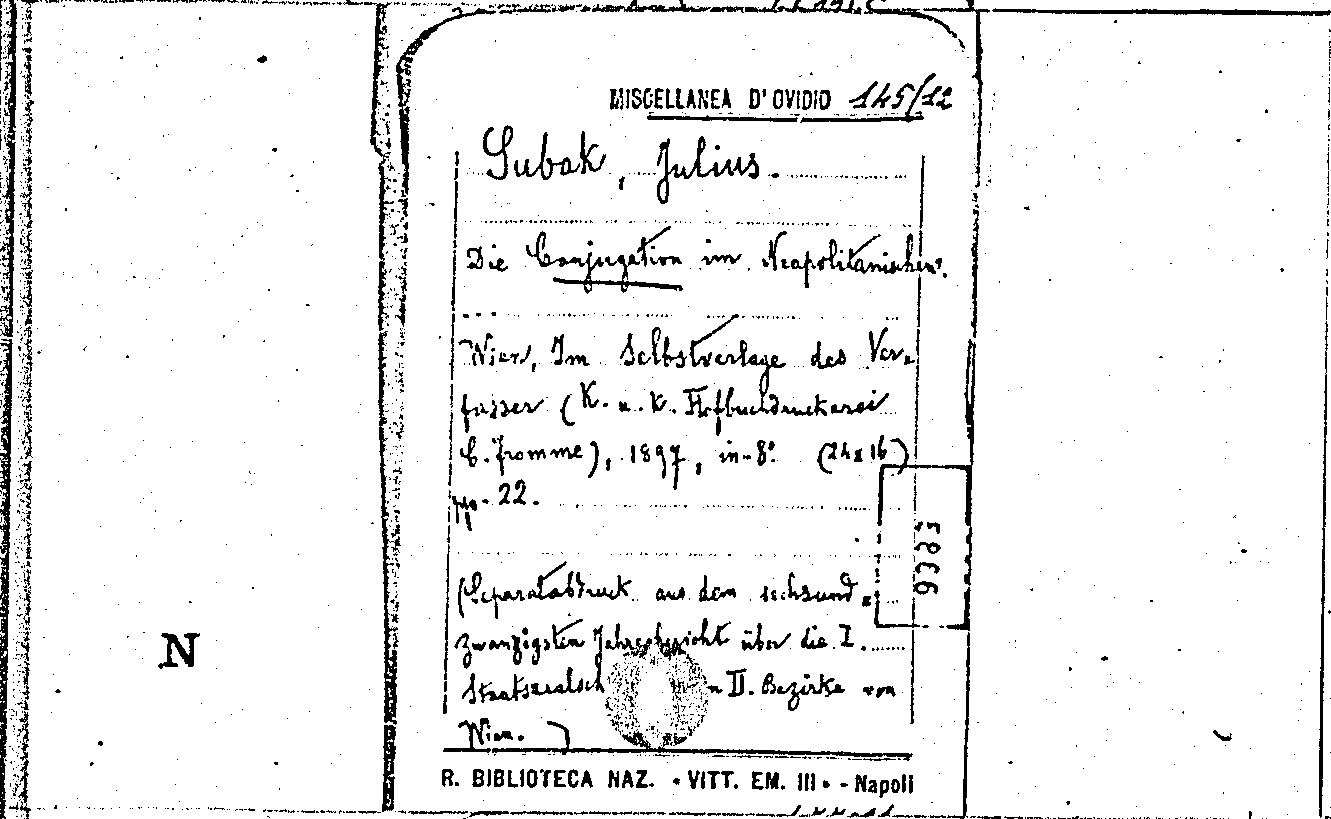 MISCELLANEA D'OVIDIO 145/12
Subak, Julius.
Die Conjugation im Neapolitanischen.
Wien, Im Selbstverlage des Ver-
fasser (K. u. K. Hofbuchdruckerei
C. Fromme), 1897, in-8°. (24x16)
pp. 22.
9385
(Separatabdruck aus dem sechsund-
zwanzigsten Jahresbericht über die I.
Staatsrealsch II. Bezirke von
Wien.)
N
R. BIBLIOTECA NAZ. • VITT. EM. III • - Napoli